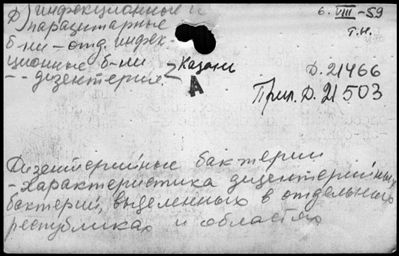 Ф) инфекционные и
паразитарные
б-ни – отд. инфек
ционные б-ни
– – дизентерия – Казань
А
6. VIII – 59
т.н.
D. 21466
Прил. D. 21503
Дизентерийные бактерии
– характеристика дизентерийных
бактерий, выделенных в отдельных
республиках и областях